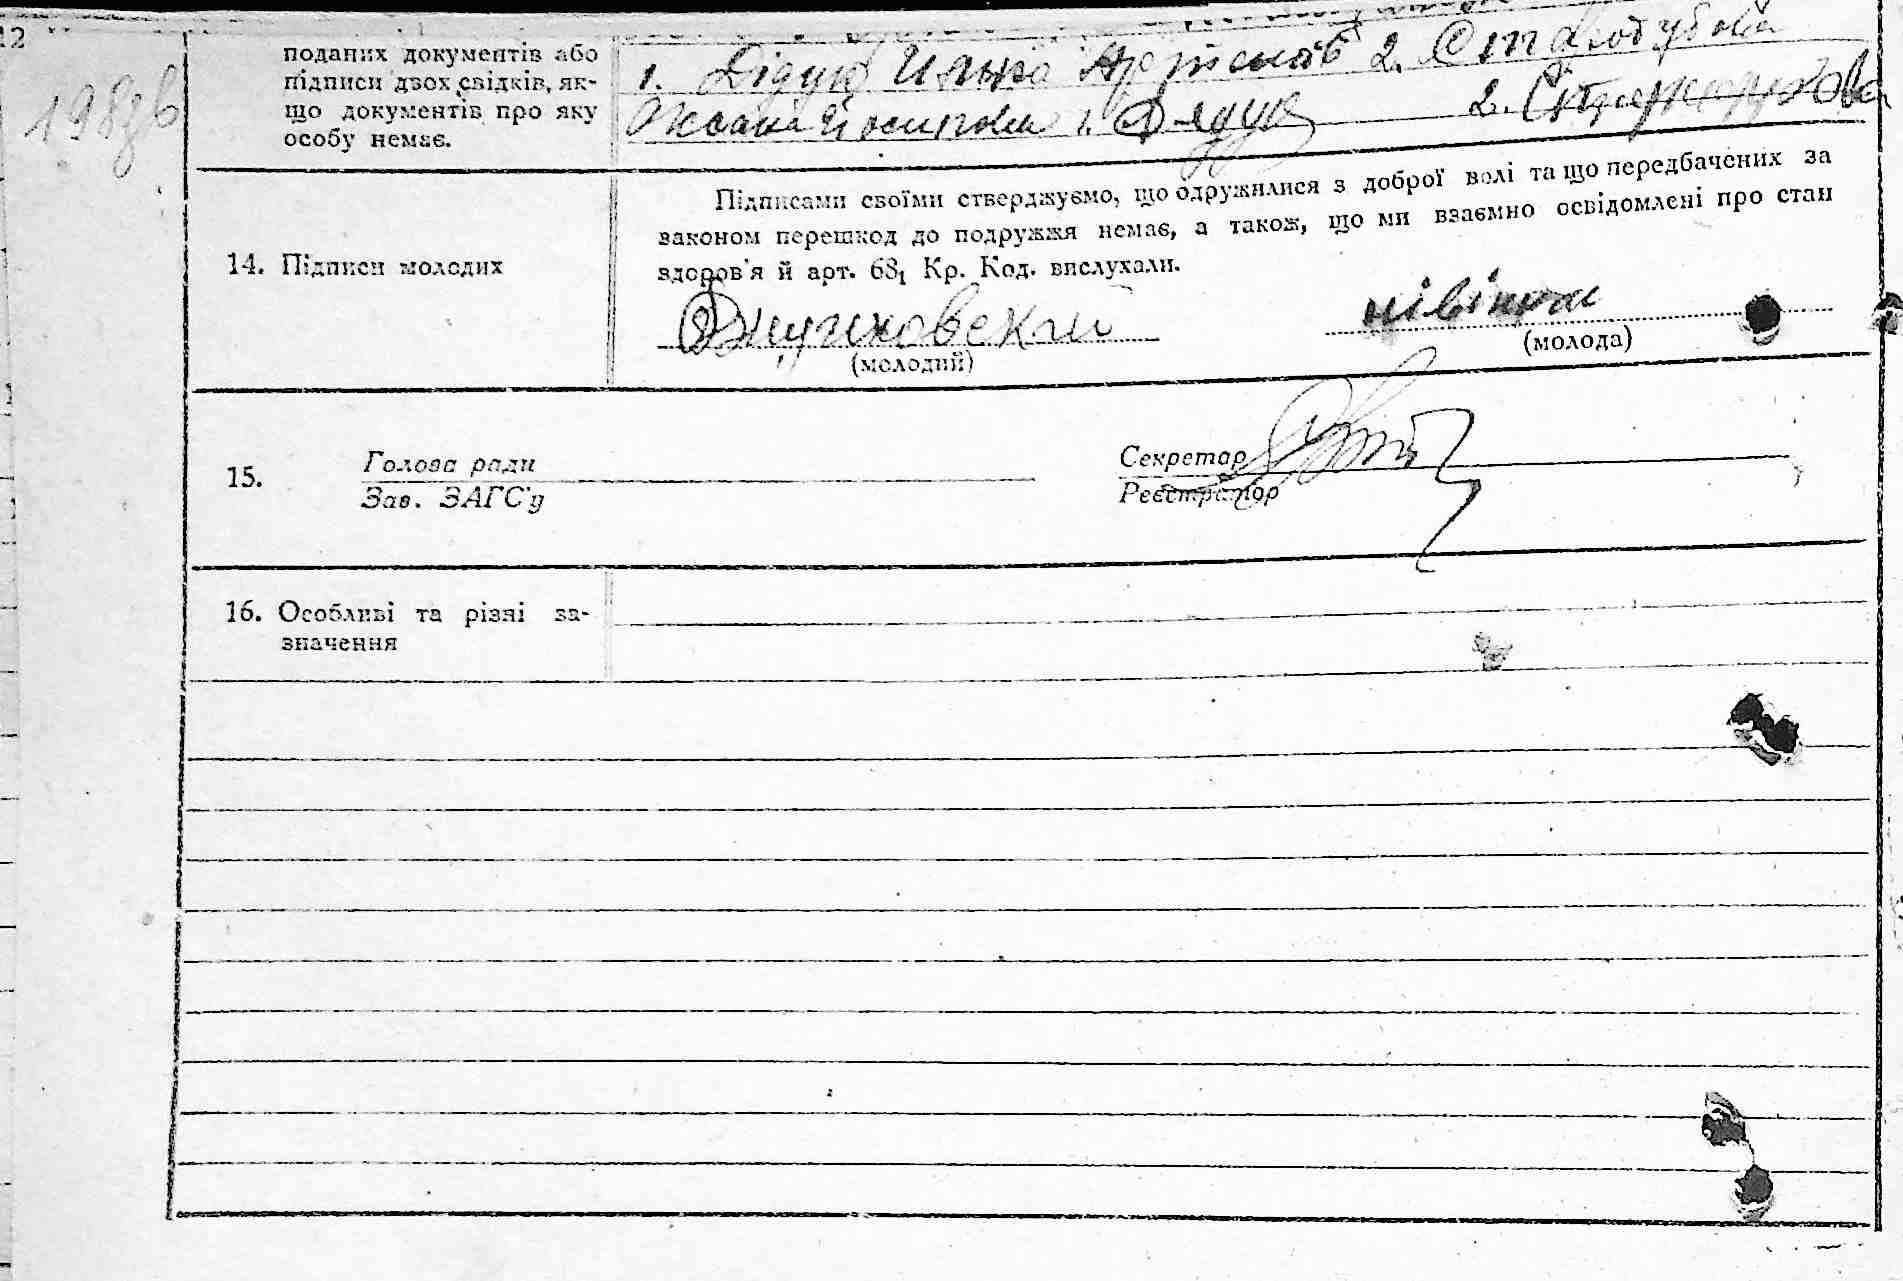 12
поданих документів або
підписи двох свідків, як-
що документів про яку
особу немає.
1. Дідук Ілько Артемів 2. Стародубова
Оксана Йосипова 1. Дядук 2. Стародубова
14. Підписи молодих
Підписами своїми стверджуємо, що одружилися з доброї волі та що передбачених за
законом перешкод до подружжя немає, а також, що ми взаємно освідомлені про стан
здоров'я й арт. 68₁ Кр. Код. вислухали.
(молодий)
(молода)
15. Голова ради
Зав. ЗАГС'у
Секретар
Реєстратор
16. Особливі та різні за-
значення